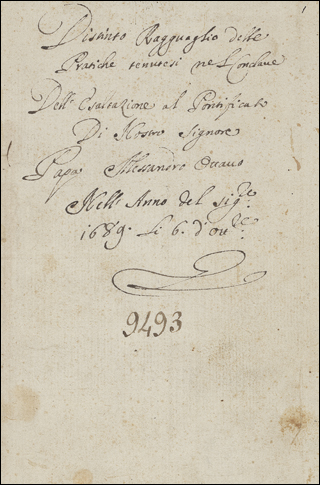 Distinto Ragguaglio delle
Pratiche tenutesi nel Conclave
Dell' Esaltazione al Pontificato
Di Nostro Signore
Papa Alessandro Ottavo
Nell' Anno del Sig.re
1689. li 6. d'ott.re
9493